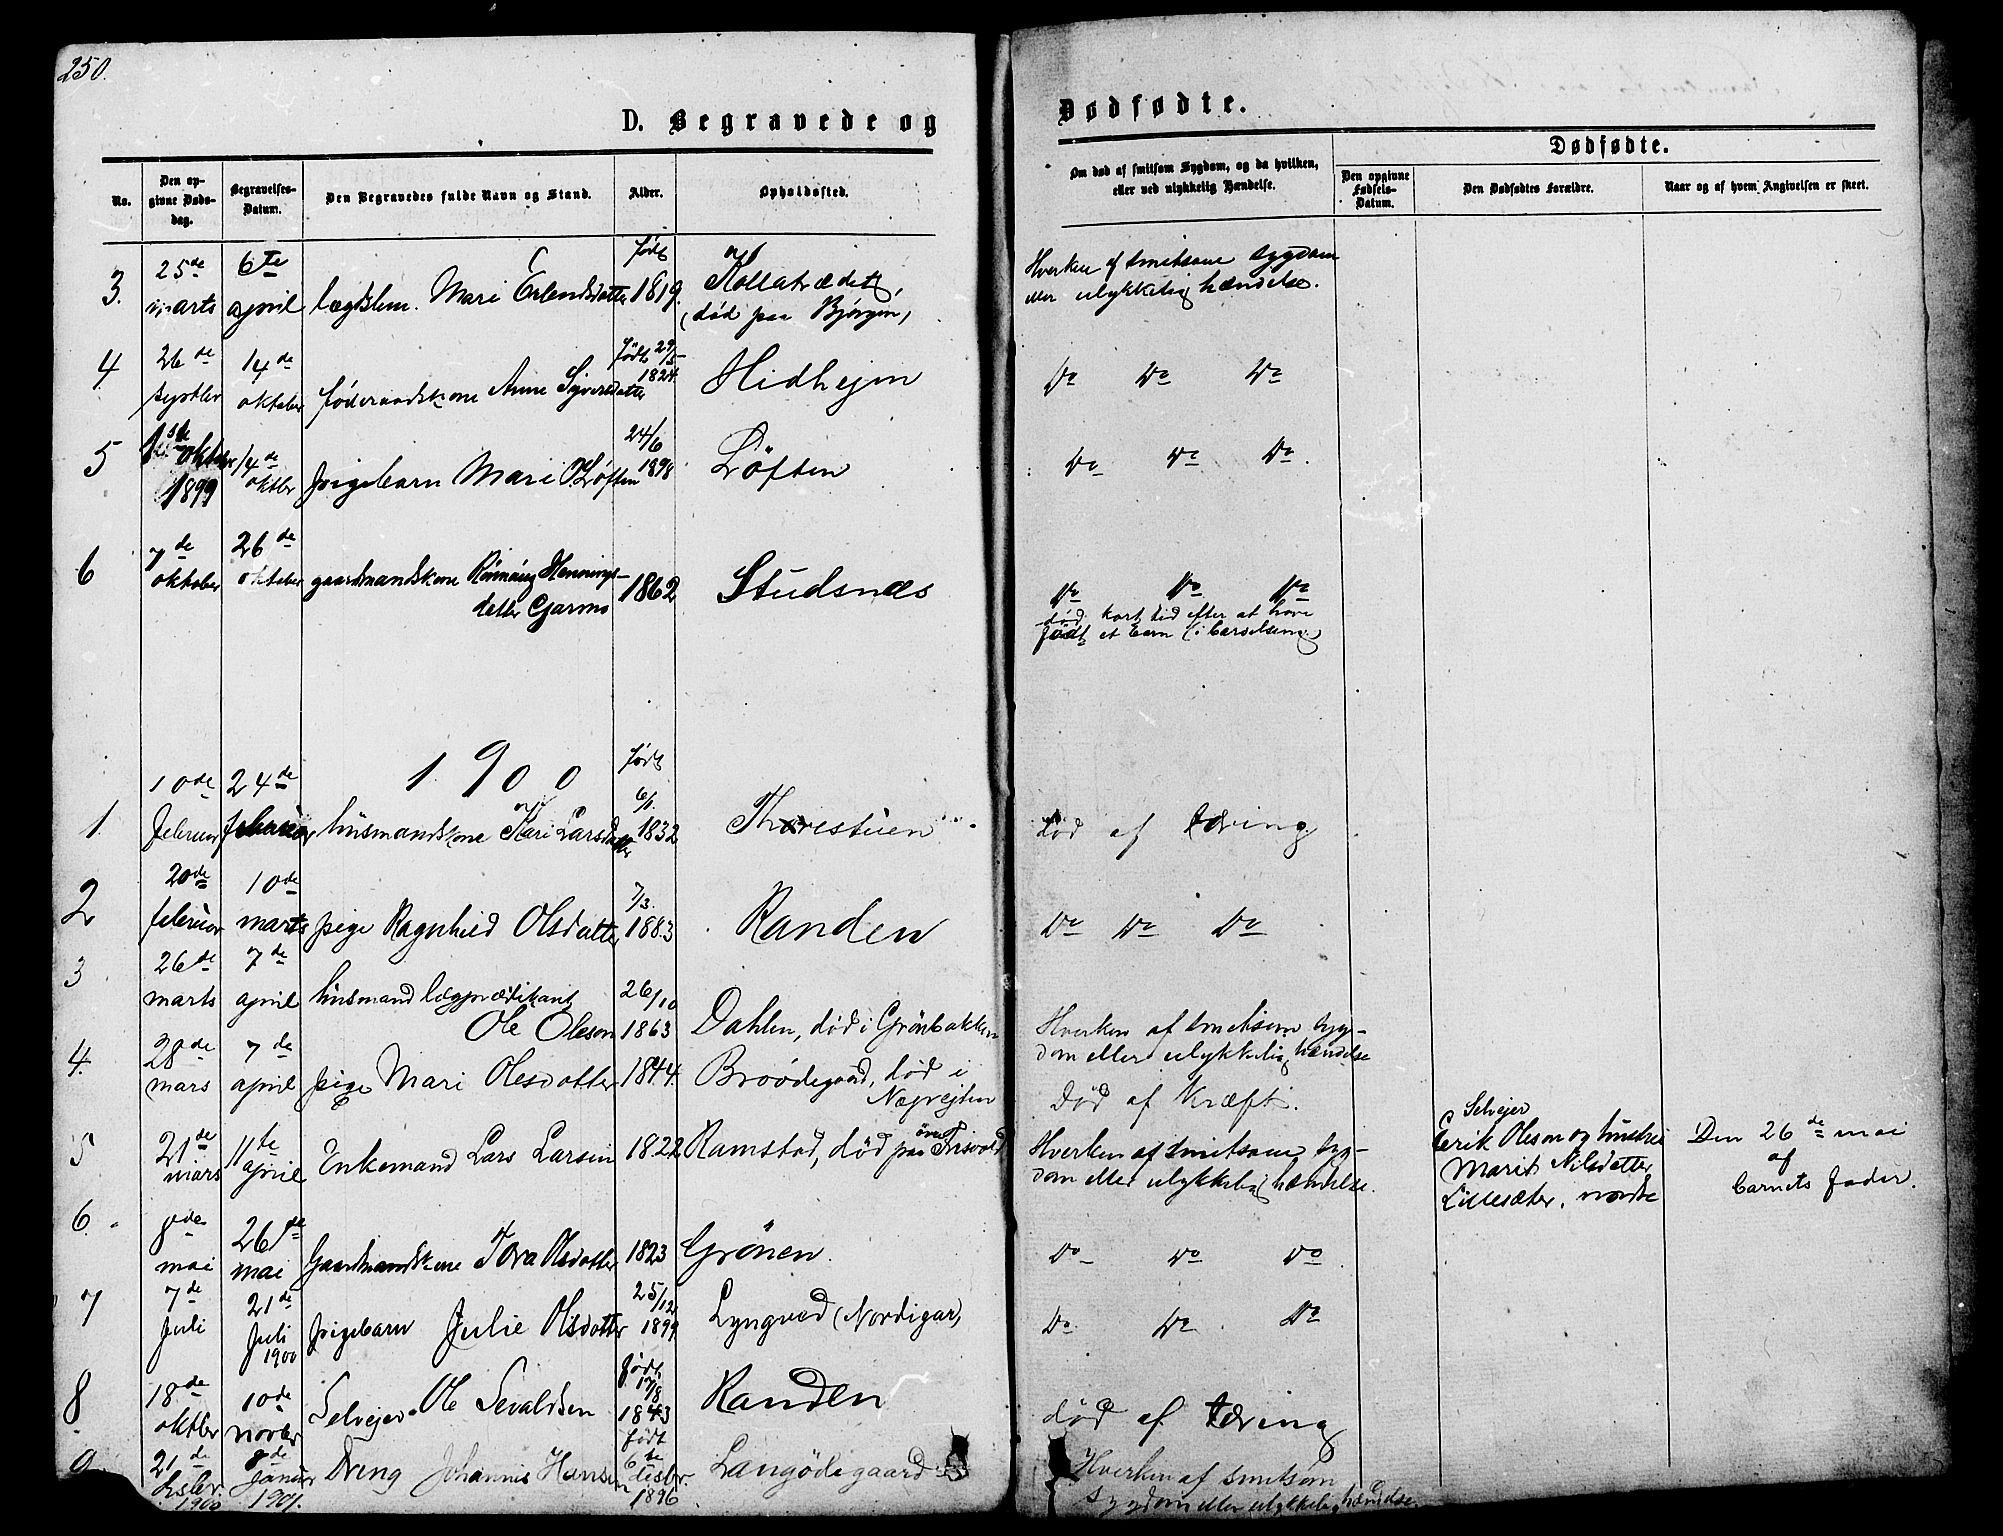 250.
D. Begravede og
Dødfødte.
No.
Den opgivne Døds-dag.
Begravelses-Datum.
Den Begravedes fulde Navn og Stand.
Alder.
Opholdssted.
Om død af smitsom Sygdom, og da hvilken, eller ved ulykkelig Hændelse.
Dødfødte.
Den opgivne Fødsels-Datum.
Den Dødfødtes Forældre.
Naar og af hvem Angivelsen er skeet.
3. 25de marts 6te april lægdslem. Mari Erlendsdatter født 1819.
(død paa Bjørgen)
Hverken af smitsom sygdom
eller ulykkelig hændelse.
4 26de septbr 14de oktober føderaadskone Anne Syversdatter født 29/5 1824 Hidhejm
Do Do Do
5 1ste oktober 1899 14de oktbr pigebarn Mari O. Løften 24/6 1898 Løften
Do Do Do
6 7de oktober 26de oktober gaardmandskone Rønnaug Hennings-
datter Garmo 1862 Studsnæs
Do Do Do
død kort tid efter at have
født et barn (i barselseng)
1900
1. 10de februar 24de februar husmandskone Kari Larsdatter født 6/1. 1832 Thorestuen
død af tæring
2 20de februar 10de marts pige Ragnhild Olsdatter 7/3. 1883 Randen
Do Do Do
3 26de marts 7de april husmand lægprædikant
Ole Oleson 26/10 1863 Dahlen, død i Grønbakken
Hverken af smitsom syg-
dom eller ulykkelig hændelse
4. 28de mars 7de april pige Mari Olesdatter 1844. død i
Død af Kræft.
5 21de mars 11te april Enkemand Lars Larsen 1822 Ramstad, død paa øvre Frisvold
Hverken af smitsom syg-
dom eller ulykkelig hændelse.
Selvejer
Erik Oleson og hustru
Marit Nilsdatter
Lillesæter, nordre
Den 26de mai
af
barnets fader.
6. 8de mai 26de mai Gaardmandskone Tora Olsdatter 1823 Grönen.
Do Do Do
7 7de Juli 21de Juli 1900 pigebarn Julie Olsdatter 25/12 1899 Lyngved (Nordigar)
Do Do Do
8. 18de oktbr 10de novbr Selvejer Ole Sevaldsen født 17/8 1843 Randen
død af tæring
9 21de desbr. 1900 8de Januar 1901. Dreng Johannis Hansen født 6te desbr. 1896 Langödegaard
Hverken af smitsom
sygdom eller ulykkelig hændelse.